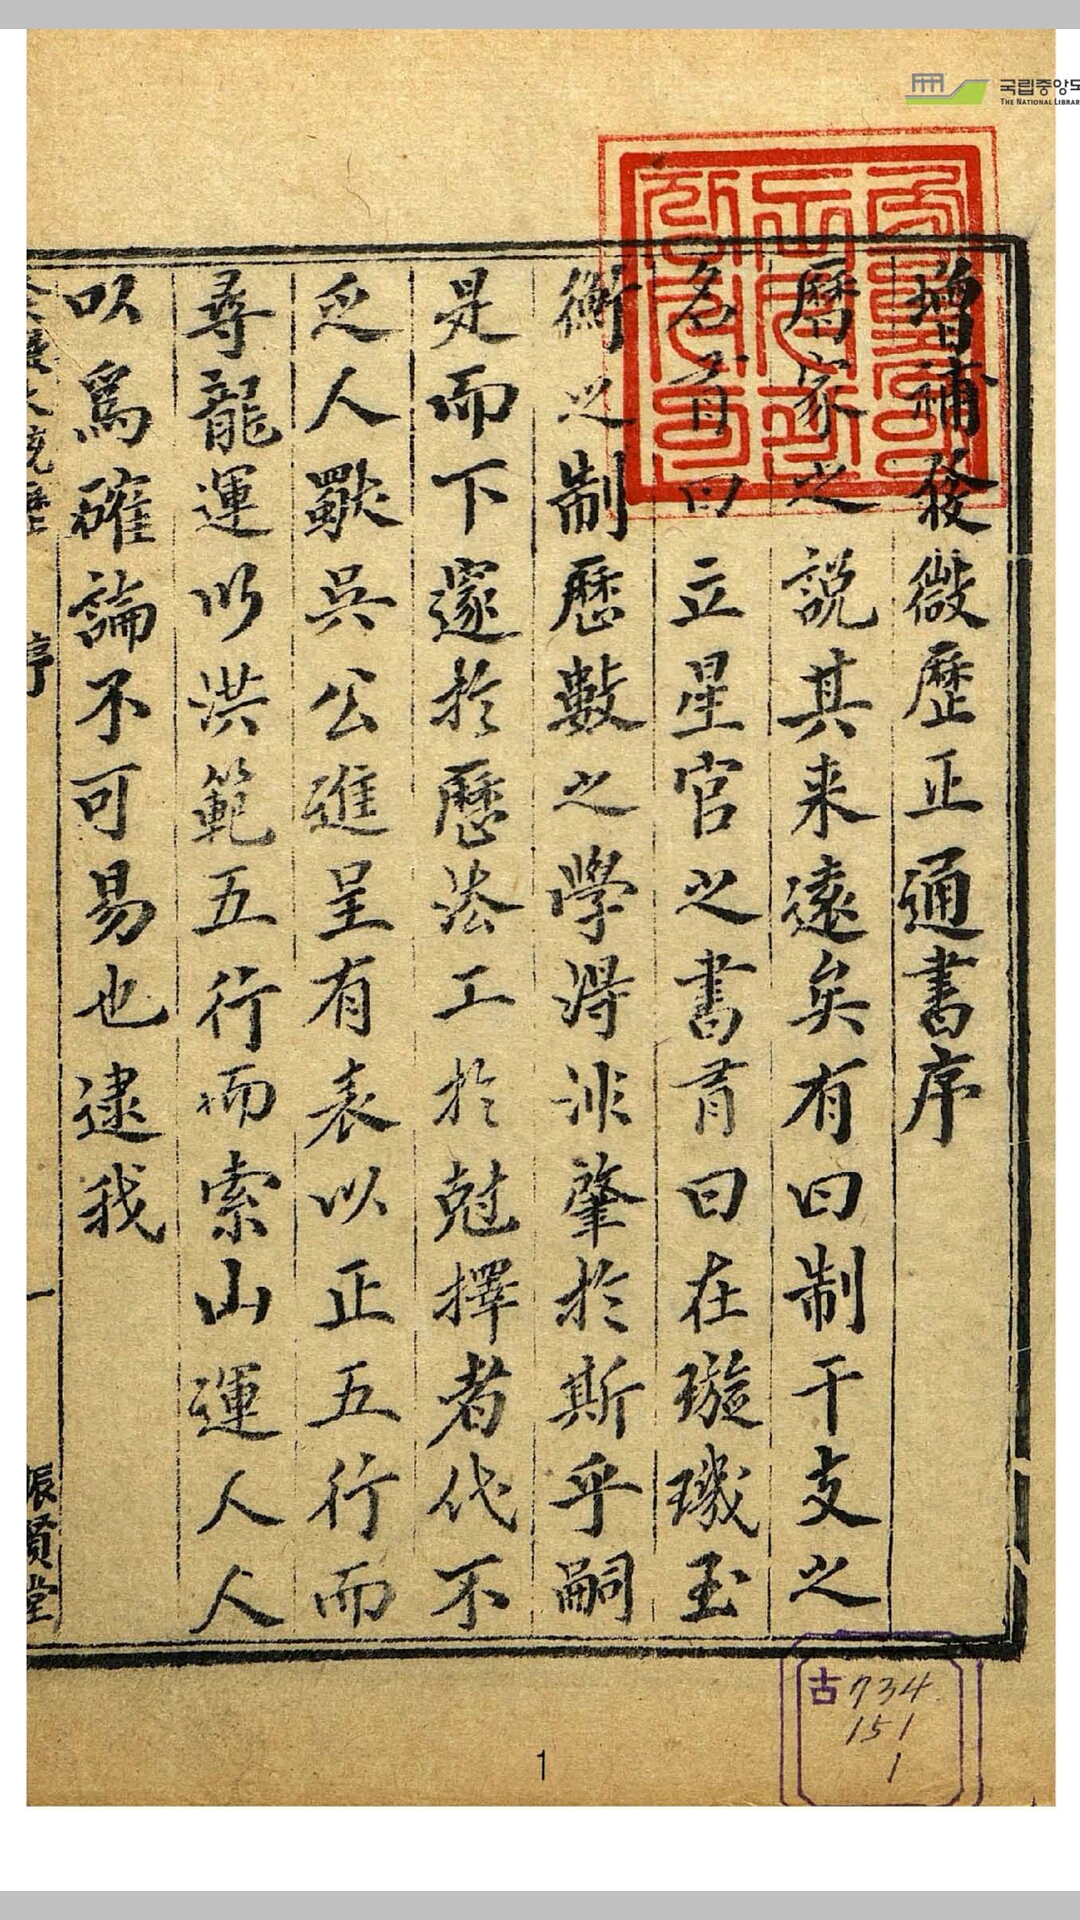 增補發微歷正通書序
曆家之說其来遠矣有曰制干支之
名首曰立星官之書首曰在璇璣玉
衡之制歷數之學得非肇於斯乎嗣
是而下邃於歷法工於尅擇者代不
乏人歟吳公進呈有表以正五行而
尋龍運以洪範五行而索山運人人
以爲確論不可易也逮我
序
一
振賢堂
국립중앙도
THE NATIONAL LIBRAR
古734
151
1
1